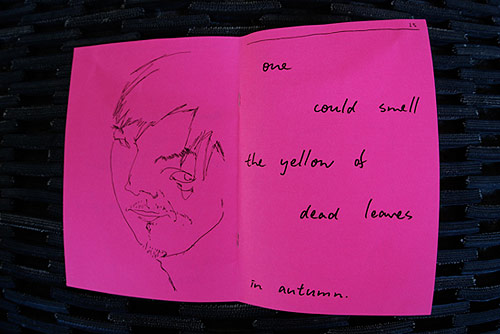 15
one
could smell
the yellow of
dead leaves
in autumn.